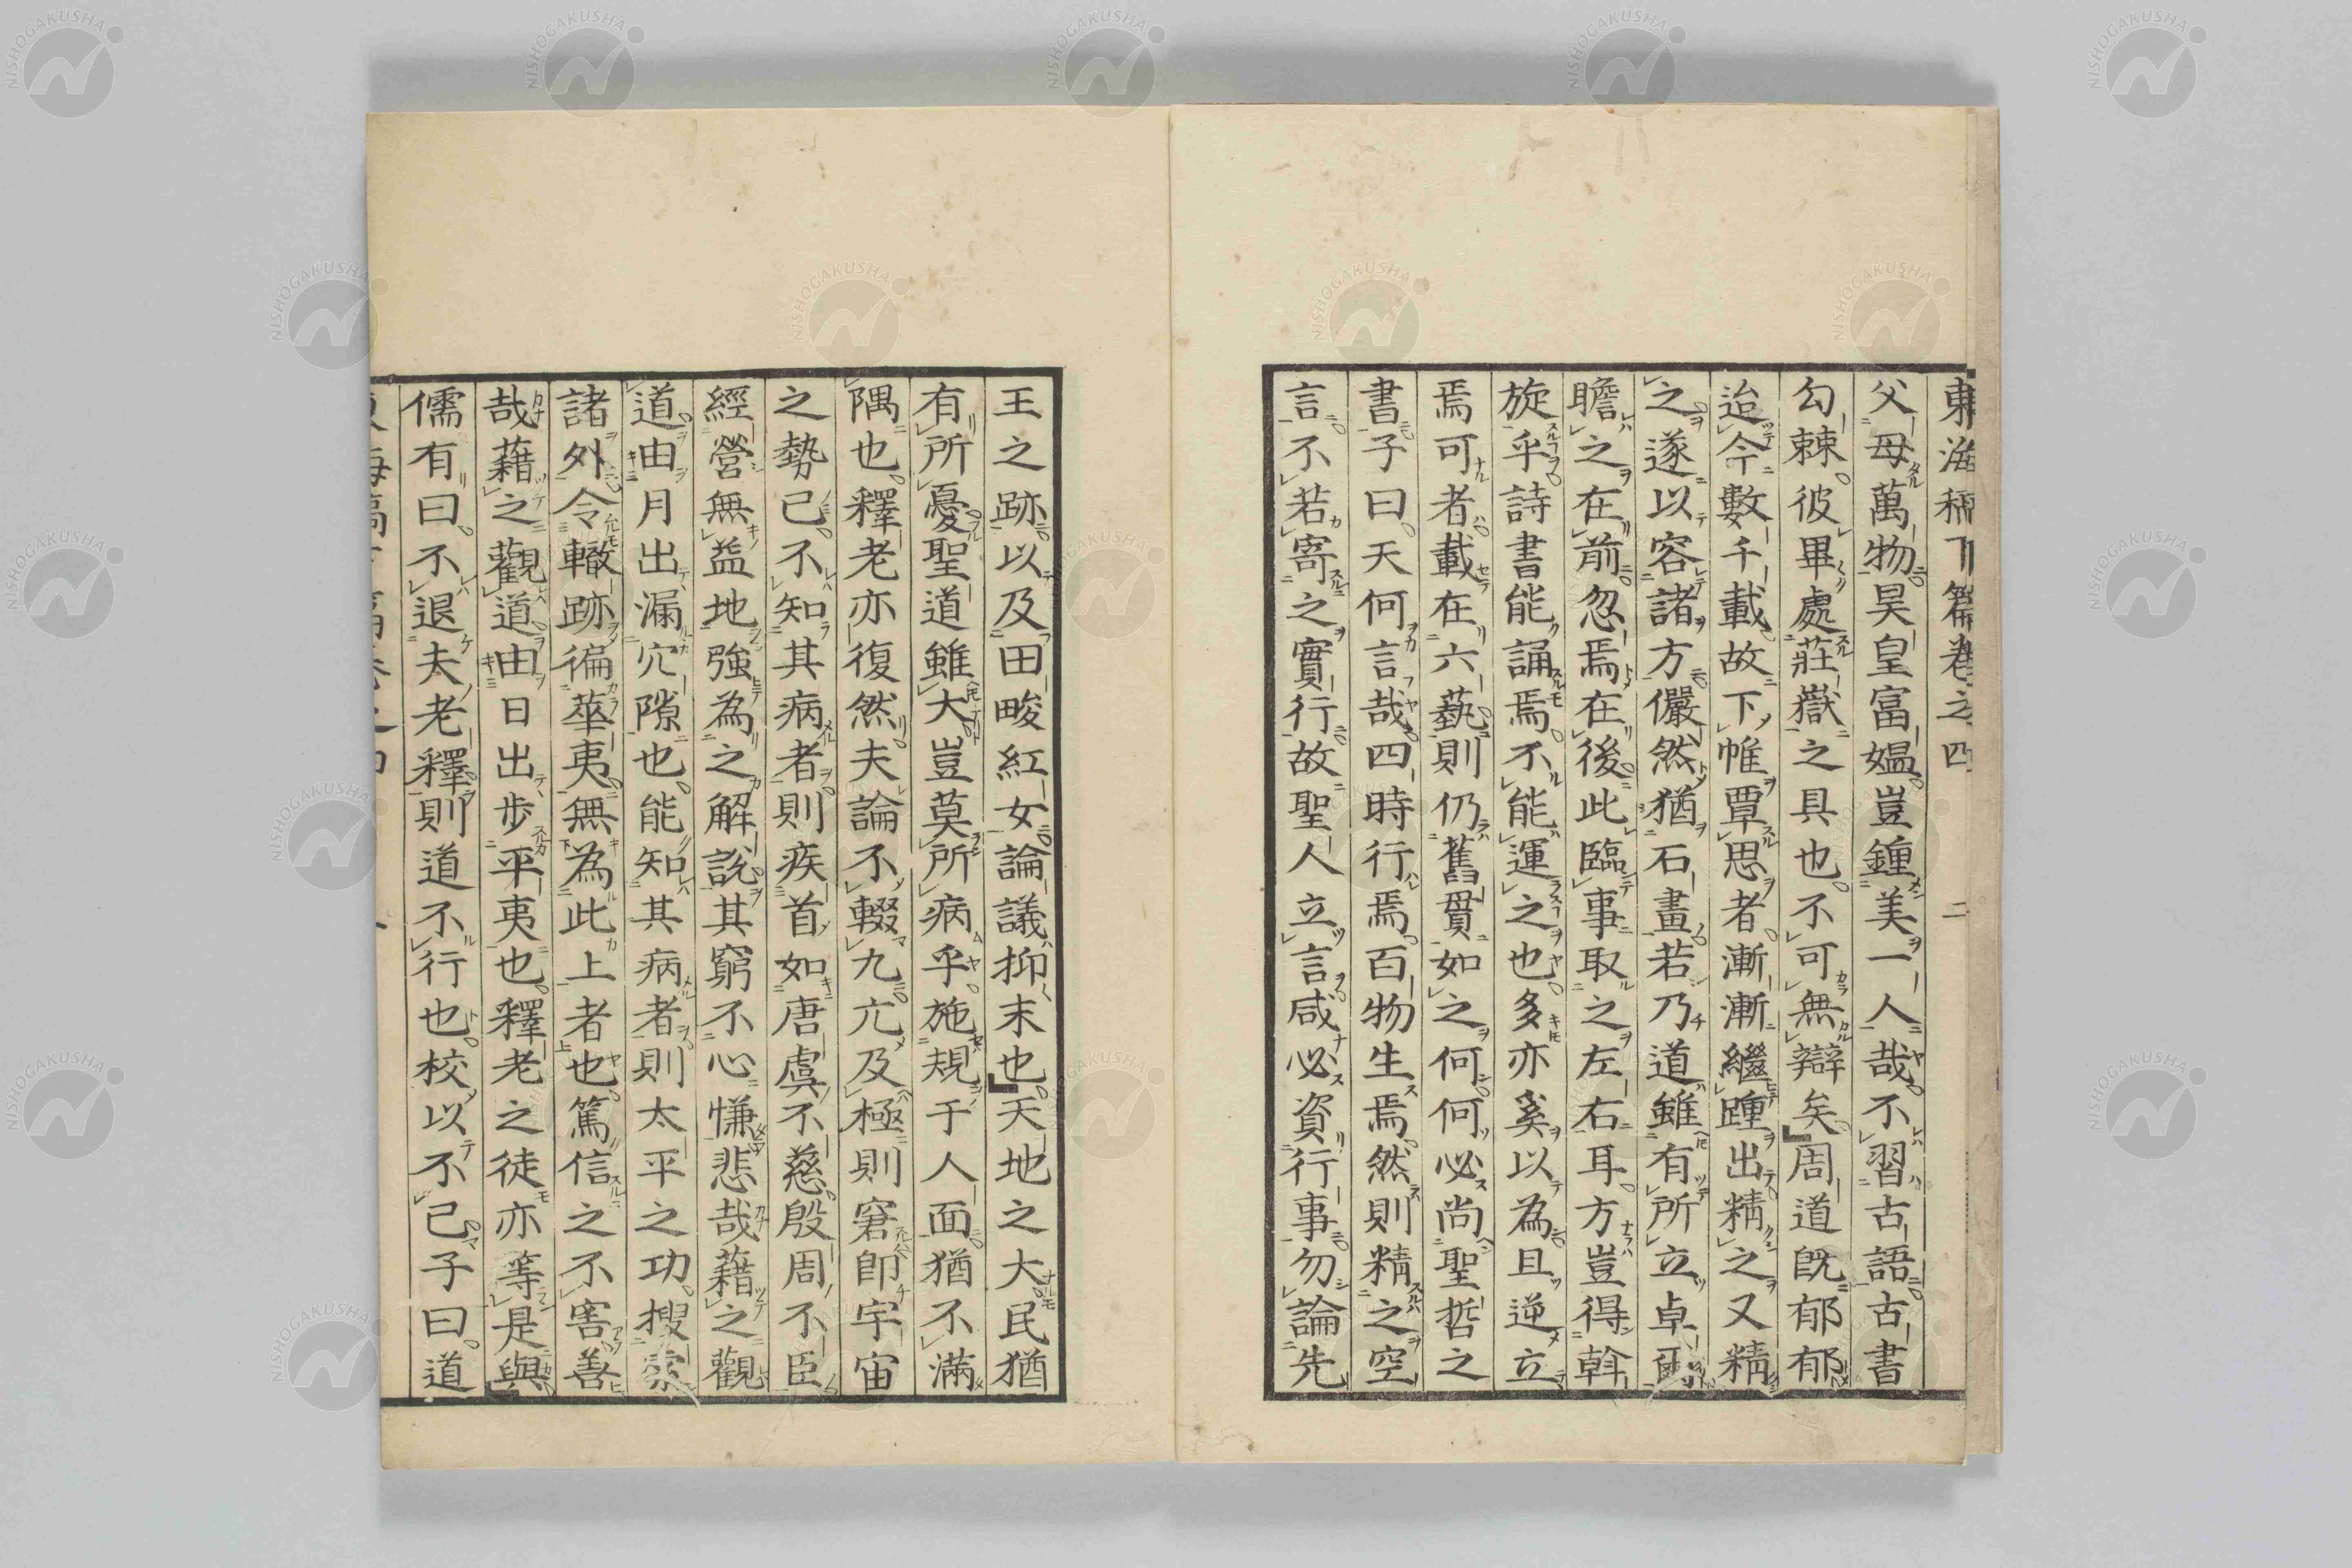 東海稿下篇卷之四　二
父母萬物昊皇富媼豈鍾美一人哉不習古語古書
勾棘彼畢處莊嶽之具也不可無辯矣周道旣郁郁
迨今數千載故下帷覃思者漸漸繼踵出精之又精
之遂以容諸方儼然猶石畫若乃道雖有所立卓爾
瞻之在前忽焉在後此臨事取之左右耳方豈得斡
旋乎詩書能誦焉不能運之也多亦奚以為且逆立
焉可者載在六藝則仍舊貫如之何何必尚聖哲之
書子曰天何言哉四時行焉百物生焉然則精之空
言不若寄之實行故聖人立言咸必資行事勿論先
王之跡以及田畯紅女論議抑末也天地之大民猶
有所憂聖道雖大豈莫所病乎施規于人面猶不滿
隅也釋老亦復然夫論不輟九亢及極則窘卽宇宙
之勢已不知其病者則疾首如唐虞不慈殷周不臣
經營無益地強為之解說其窮不心慊悲哉藉之觀
道由月出漏穴隙也能知其病者則太平之功搜索
諸外令轍跡徧華夷無為此上者也篤信之不害善
哉藉之觀道由日出步平夷也釋老之徒亦等是與
儒有曰不退夫老釋則道不行也校以不已子曰道